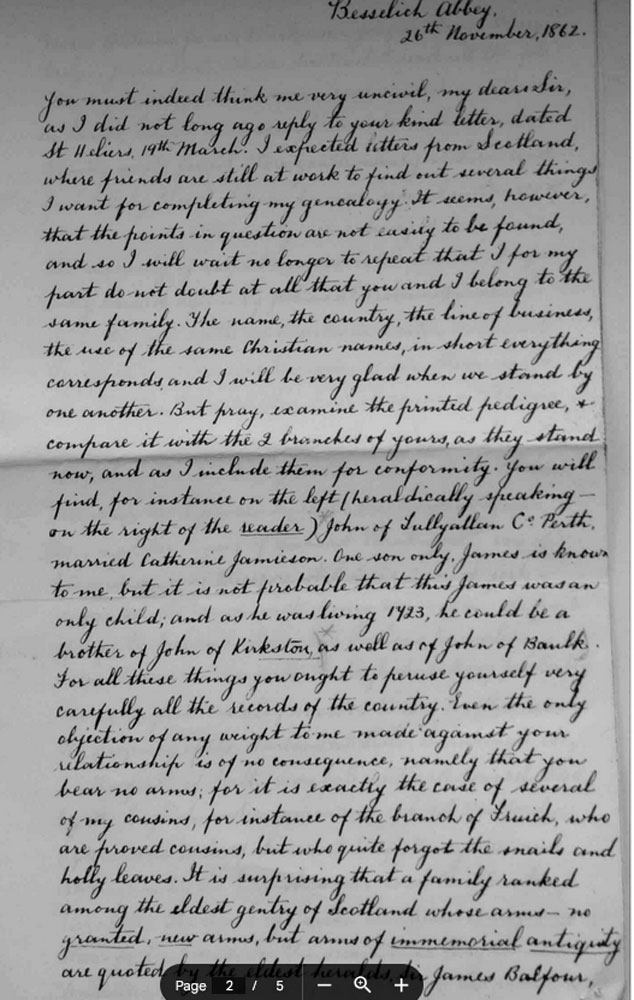 Besselich Abbey.
26th November, 1862.
You must indeed think me very uncivil, my dear Sir,
as I did not long ago reply to your kind letter, dated
St Heliers, 19th March. I expected letters from Scotland,
where friends are still at work to find out several things
I want for completing my genealogy. It seems, however,
that the points in question are not easily to be found,
and so I will wait no longer to repeat that I for my
part do not doubt at all that you and I belong to the
same family. The name, the country, the line of business,
the use of the same Christian names, in short everything
corresponds, and I will be very glad when we stand by
one another. But pray, examine the printed pedigree, &
compare it with the 2 branches of yours, as they stand
now, and as I include them for conformity. You will
find, for instance on the left (heraldically speaking—
on the right of the reader) John of Tullyallan Co Perth,
married Catherine Jamieson. One son only, James is known
to me, but it is not probable that this James was an
only child; and as he was living 1723, he could be a
brother of John of Kirkston, as well as of John of Baulk.
For all these things you ought to peruse yourself very
carefully all the records of the country. Even the only
objection of any weight to me made against your
relationship is of no consequence, namely that you
bear no arms; for it is exactly the case of several
of my cousins, for instance of the branch of Fruich, who
are proved cousins, but who quite forgot the snails and
holly leaves. It is surprising that a family ranked
among the eldest gentry of Scotland whose arms— no
granted, new arms, but arms of immemorial antiquity
are quoted by the eldest heralds, Sir James Balfour,
Page 2 / 5